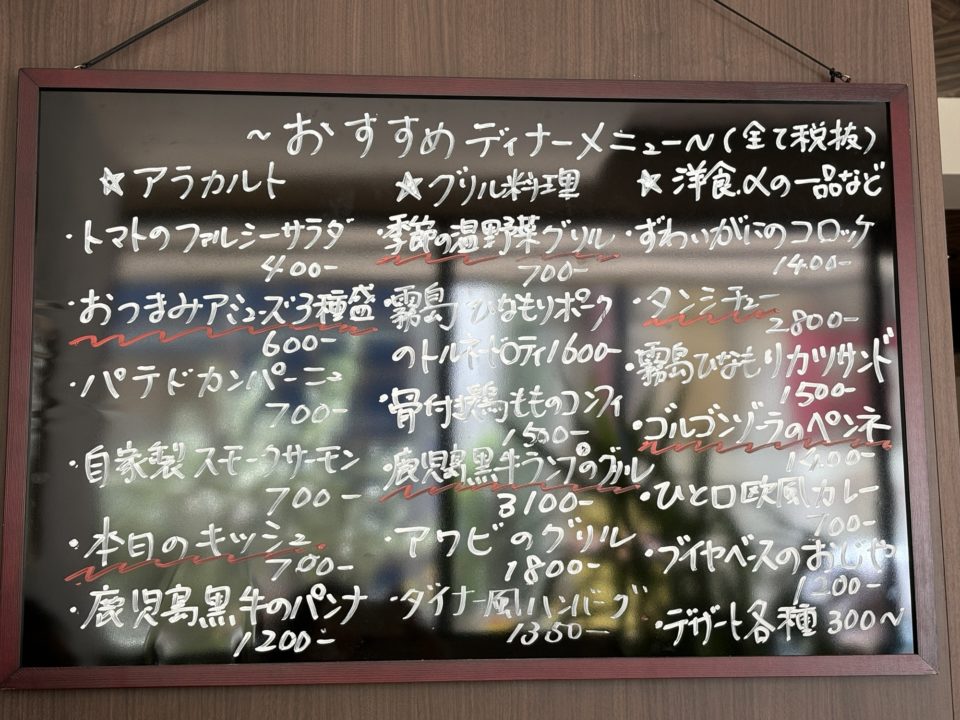 ~おすすめディナーメニュー~(全て税抜)
☆アラカルト
・トマトのファルシーサラダ
400-
・おつまみアミューズ3種盛
600-
・パテドカンパーニュ
700-
・自家製スモークサーモン
700-
・本日のキッシュ
700-
・鹿児島黒牛のパンナ
1200-
★グリル料理
・季節の温野菜グリル
700-
・霧島ひなもりポーク
のトルネードロティ1600-
・骨付き鶏もものコンフィ
1500-
・鹿児島黒牛ランプのグリル
3100-
・アワビのグリル
1800-
・ダイナー風ハンバーグ
1350-
★洋食.〆の一品など
・ずわいがにのコロッケ
1400-
・タンシチュー
2800-
・霧島ひなもりカツサンド
1500-
・ゴルゴンゾーラのペンネ
1400-
・ひと口欧風カレー
700-
・ブイヤベースのおじや
1200-
・デザート各種300~